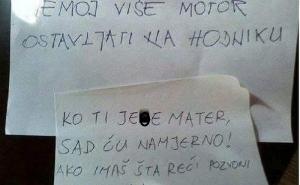 EMOJ VIŠE MOTOR
OSTAVLJATI NA HODNIKU
KO TI JEBE MATER,
SAD ĆU NAMJERNO!
AKO IMAŠ ŠTA REĆI POZVONI